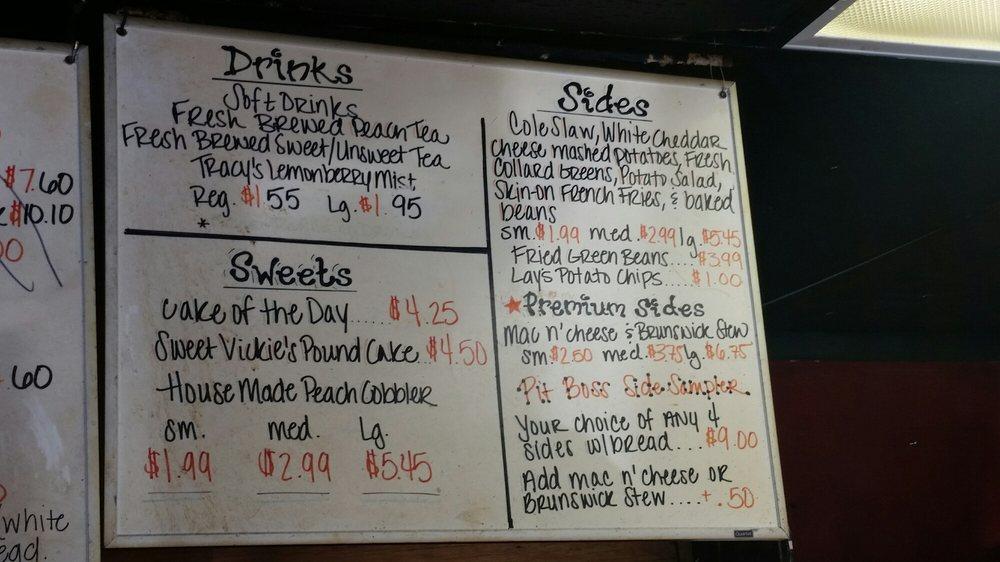 $7.60
$10.10
60
white
Drinks
Soft Drinks
Fresh Brewed Peach Tea
Fresh Brewed Sweet/Unsweet Tea
Tracy's Lemonberry Mist
Reg. $1.55 Lg. $1.95
*
Sweets
Cake of the Day...... $4.25
Sweet Vickie's Pound Cake...$4.50
House Made Peach Cobbler
sm. med. Lg.
$1.99 $2.99 $5.45
Sides
Cole Slaw, White Cheddar
cheese mashed potatoes, Fresh
Collard Greens, Potato Salad,
Skin-on French Fries, & baked
beans
sm. $1.99 med. $2.99 lg. $5.45
Fried Green Beans.... $3.99
Lays Potato Chips..... $1.00
Premium Sides
Mac n' cheese & Brunswick Stew
sm. $2.50 med. $3.75 lg. $6.75
Pit Boss Side Sampler
Your choice of ANY 4
sides w/bread... $9.00
Add mac n' cheese OR
Brunswick Stew....+ .50